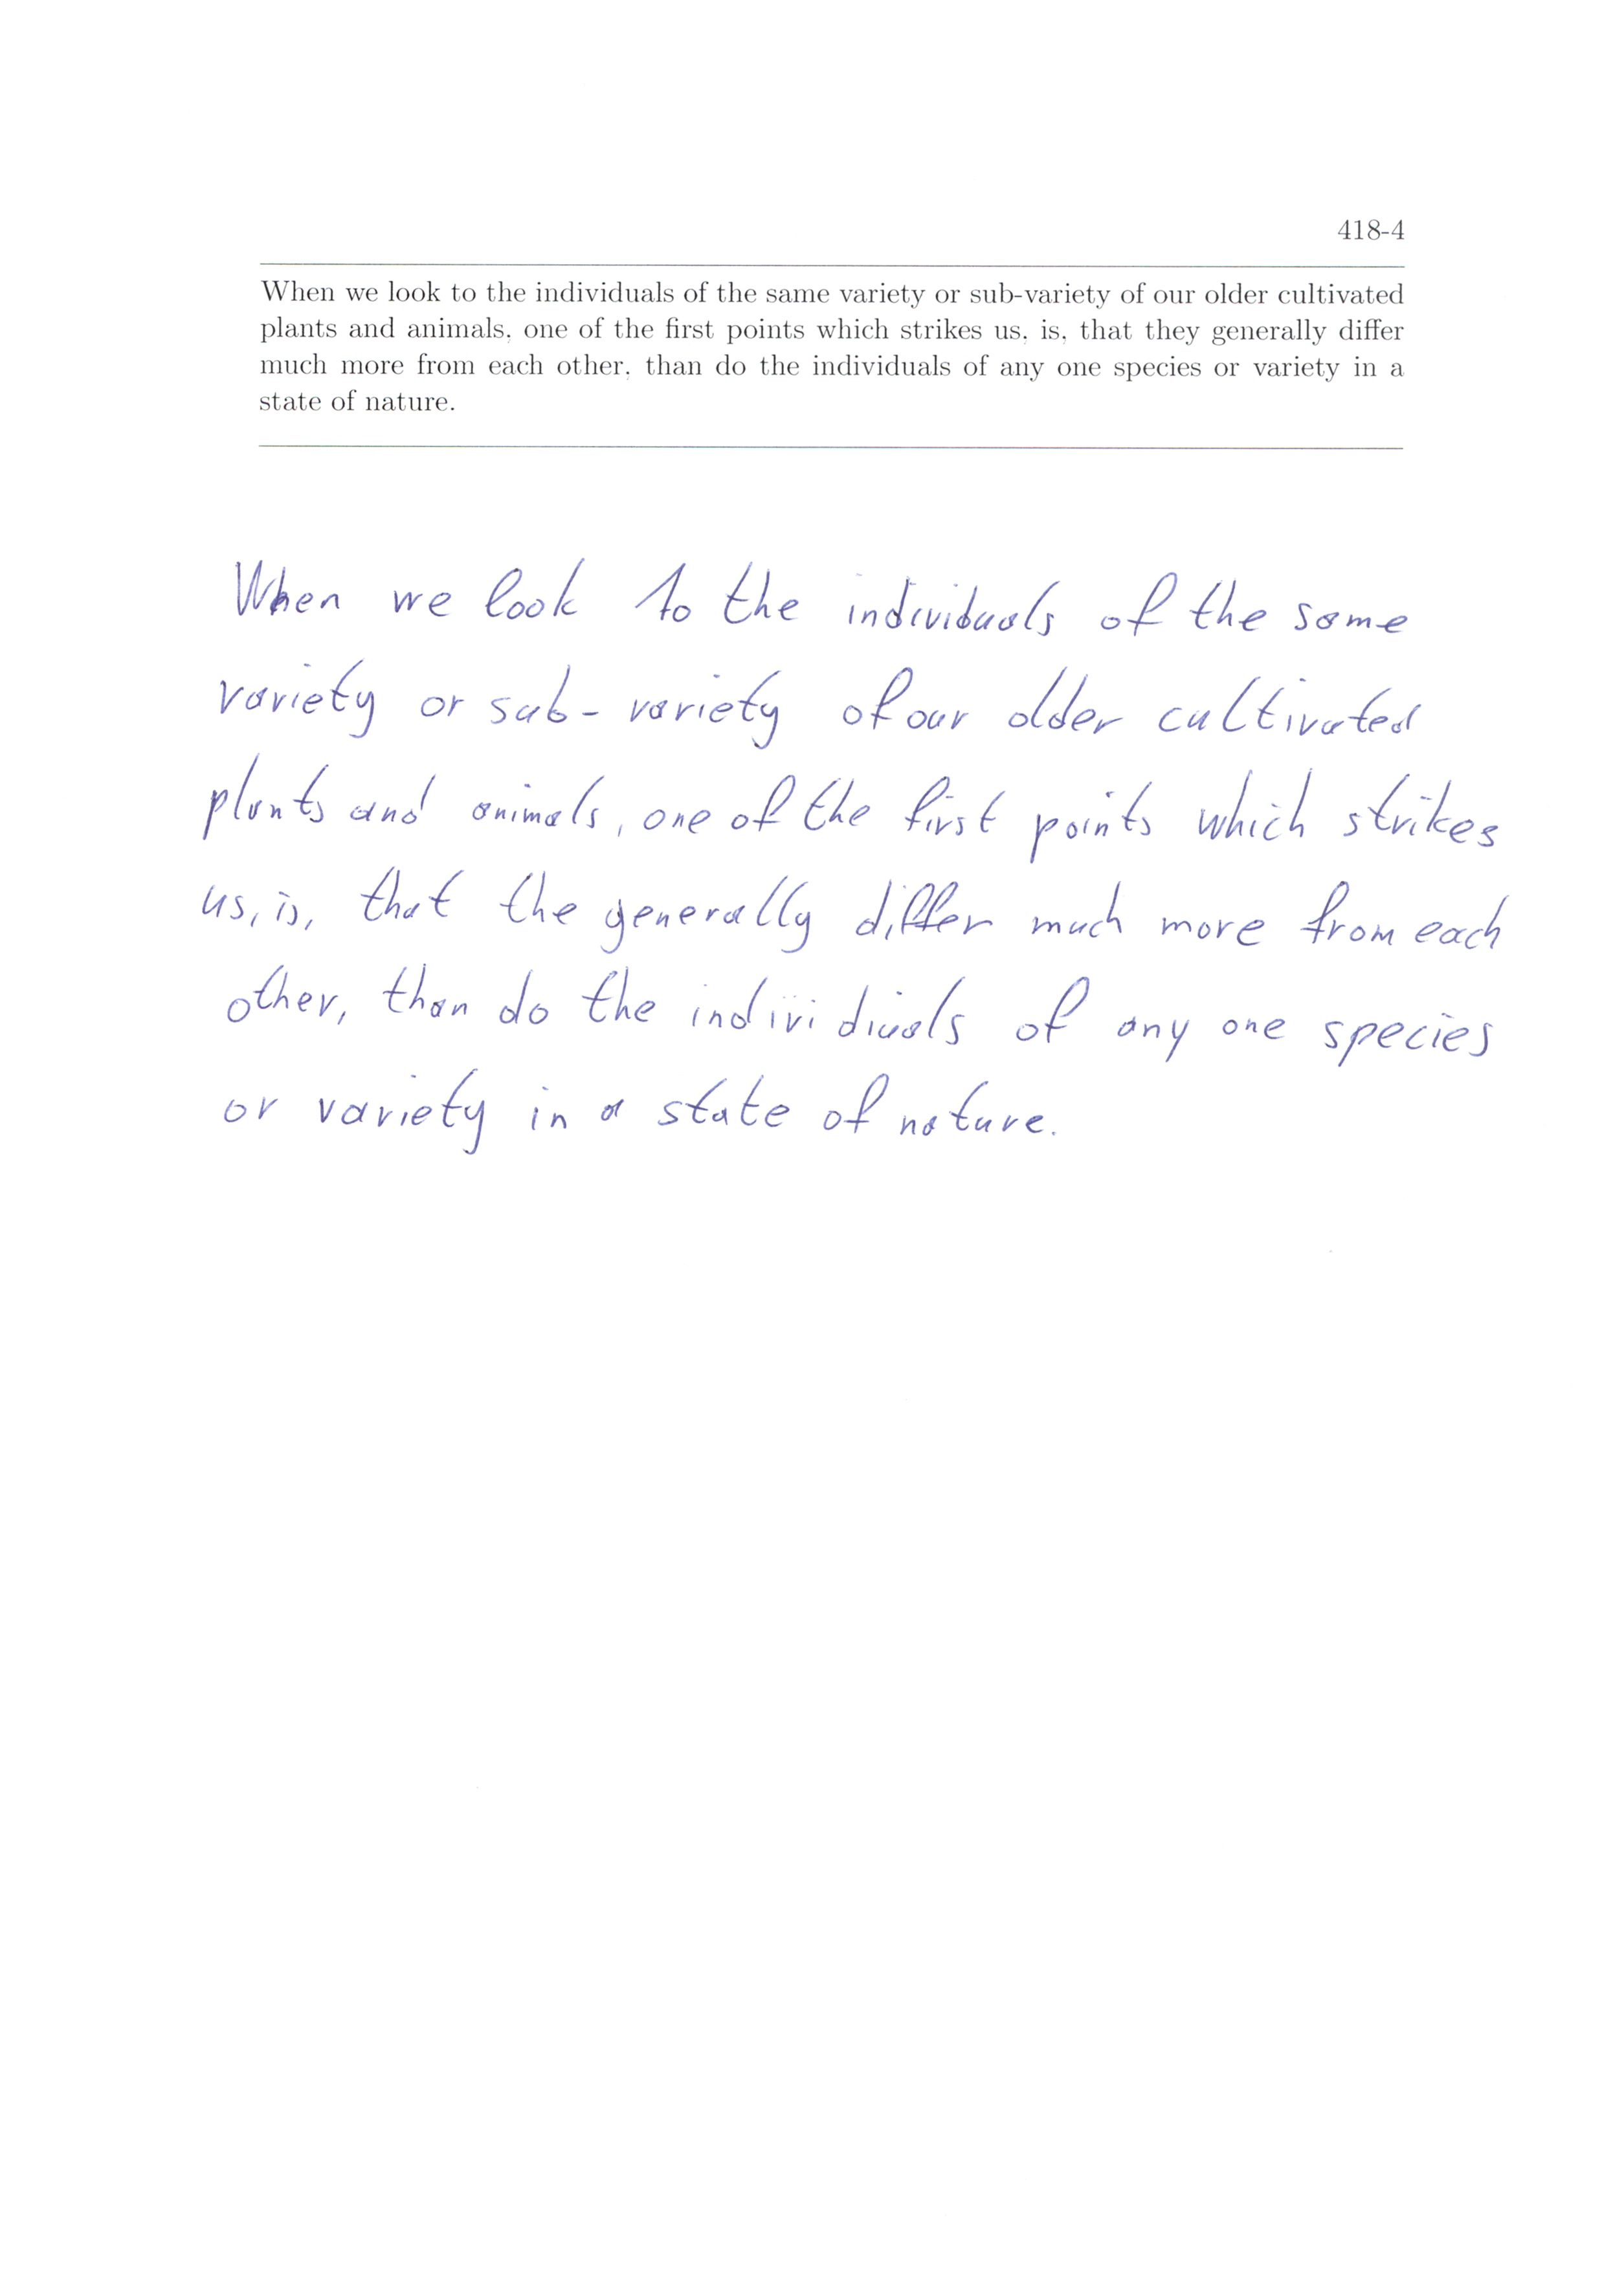 418-4
When we look to the individuals of the same variety or sub-variety of our older cultivated
plants and animals, one of the first points which strikes us, is, that they generally differ
much more from each other, than do the individuals of any one species or variety in a
state of nature.
When we look to the individuals of the same
variety or sub-variety of our older cultivated
plants and animals, one of the first points which strikes
us, is, that the generally differ much more from each
other, than do the individials of any one species
or variety in a state of nature.